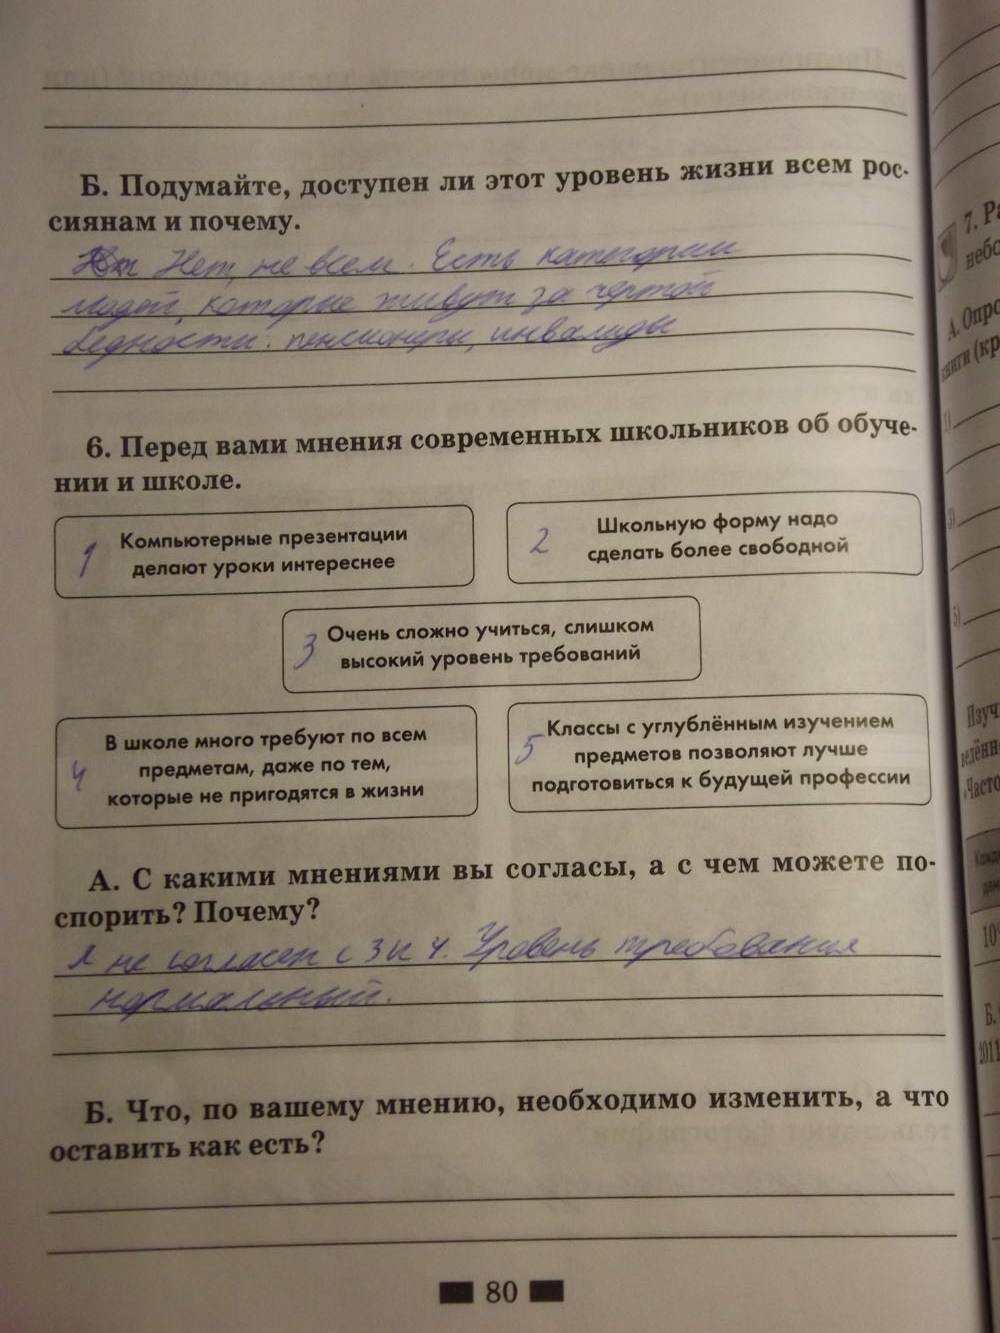 Б. Подумайте, доступен ли этот уровень жизни всем рос-
сиянам и почему.
Нет, не всем. Есть категории
людей, которые живут за чертой
бедности: пенсионеры, инвалиды
6. Перед вами мнения современных школьников об обуче-
нии и школе.
1 Компьютерные презентации
делают уроки интереснее
2 Школьную форму надо
сделать более свободной
3 Очень сложно учиться, слишком
высокий уровень требований
4 В школе много требуют по всем
предметам, даже по тем,
которые не пригодятся в жизни
5 Классы с углублённым изучением
предметов позволяют лучше
подготовиться к будущей профессии
А. С какими мнениями вы согласы, а с чем можете по-
спорить? Почему?
Я не согласен с 3 и 4. Уровень требования
нормальный.
Б. Что, по вашему мнению, необходимо изменить, а что
оставить как есть?
80
7.
А. Опро
книги (кр
1)
3)
5)
Изуч
10
Б.
2011